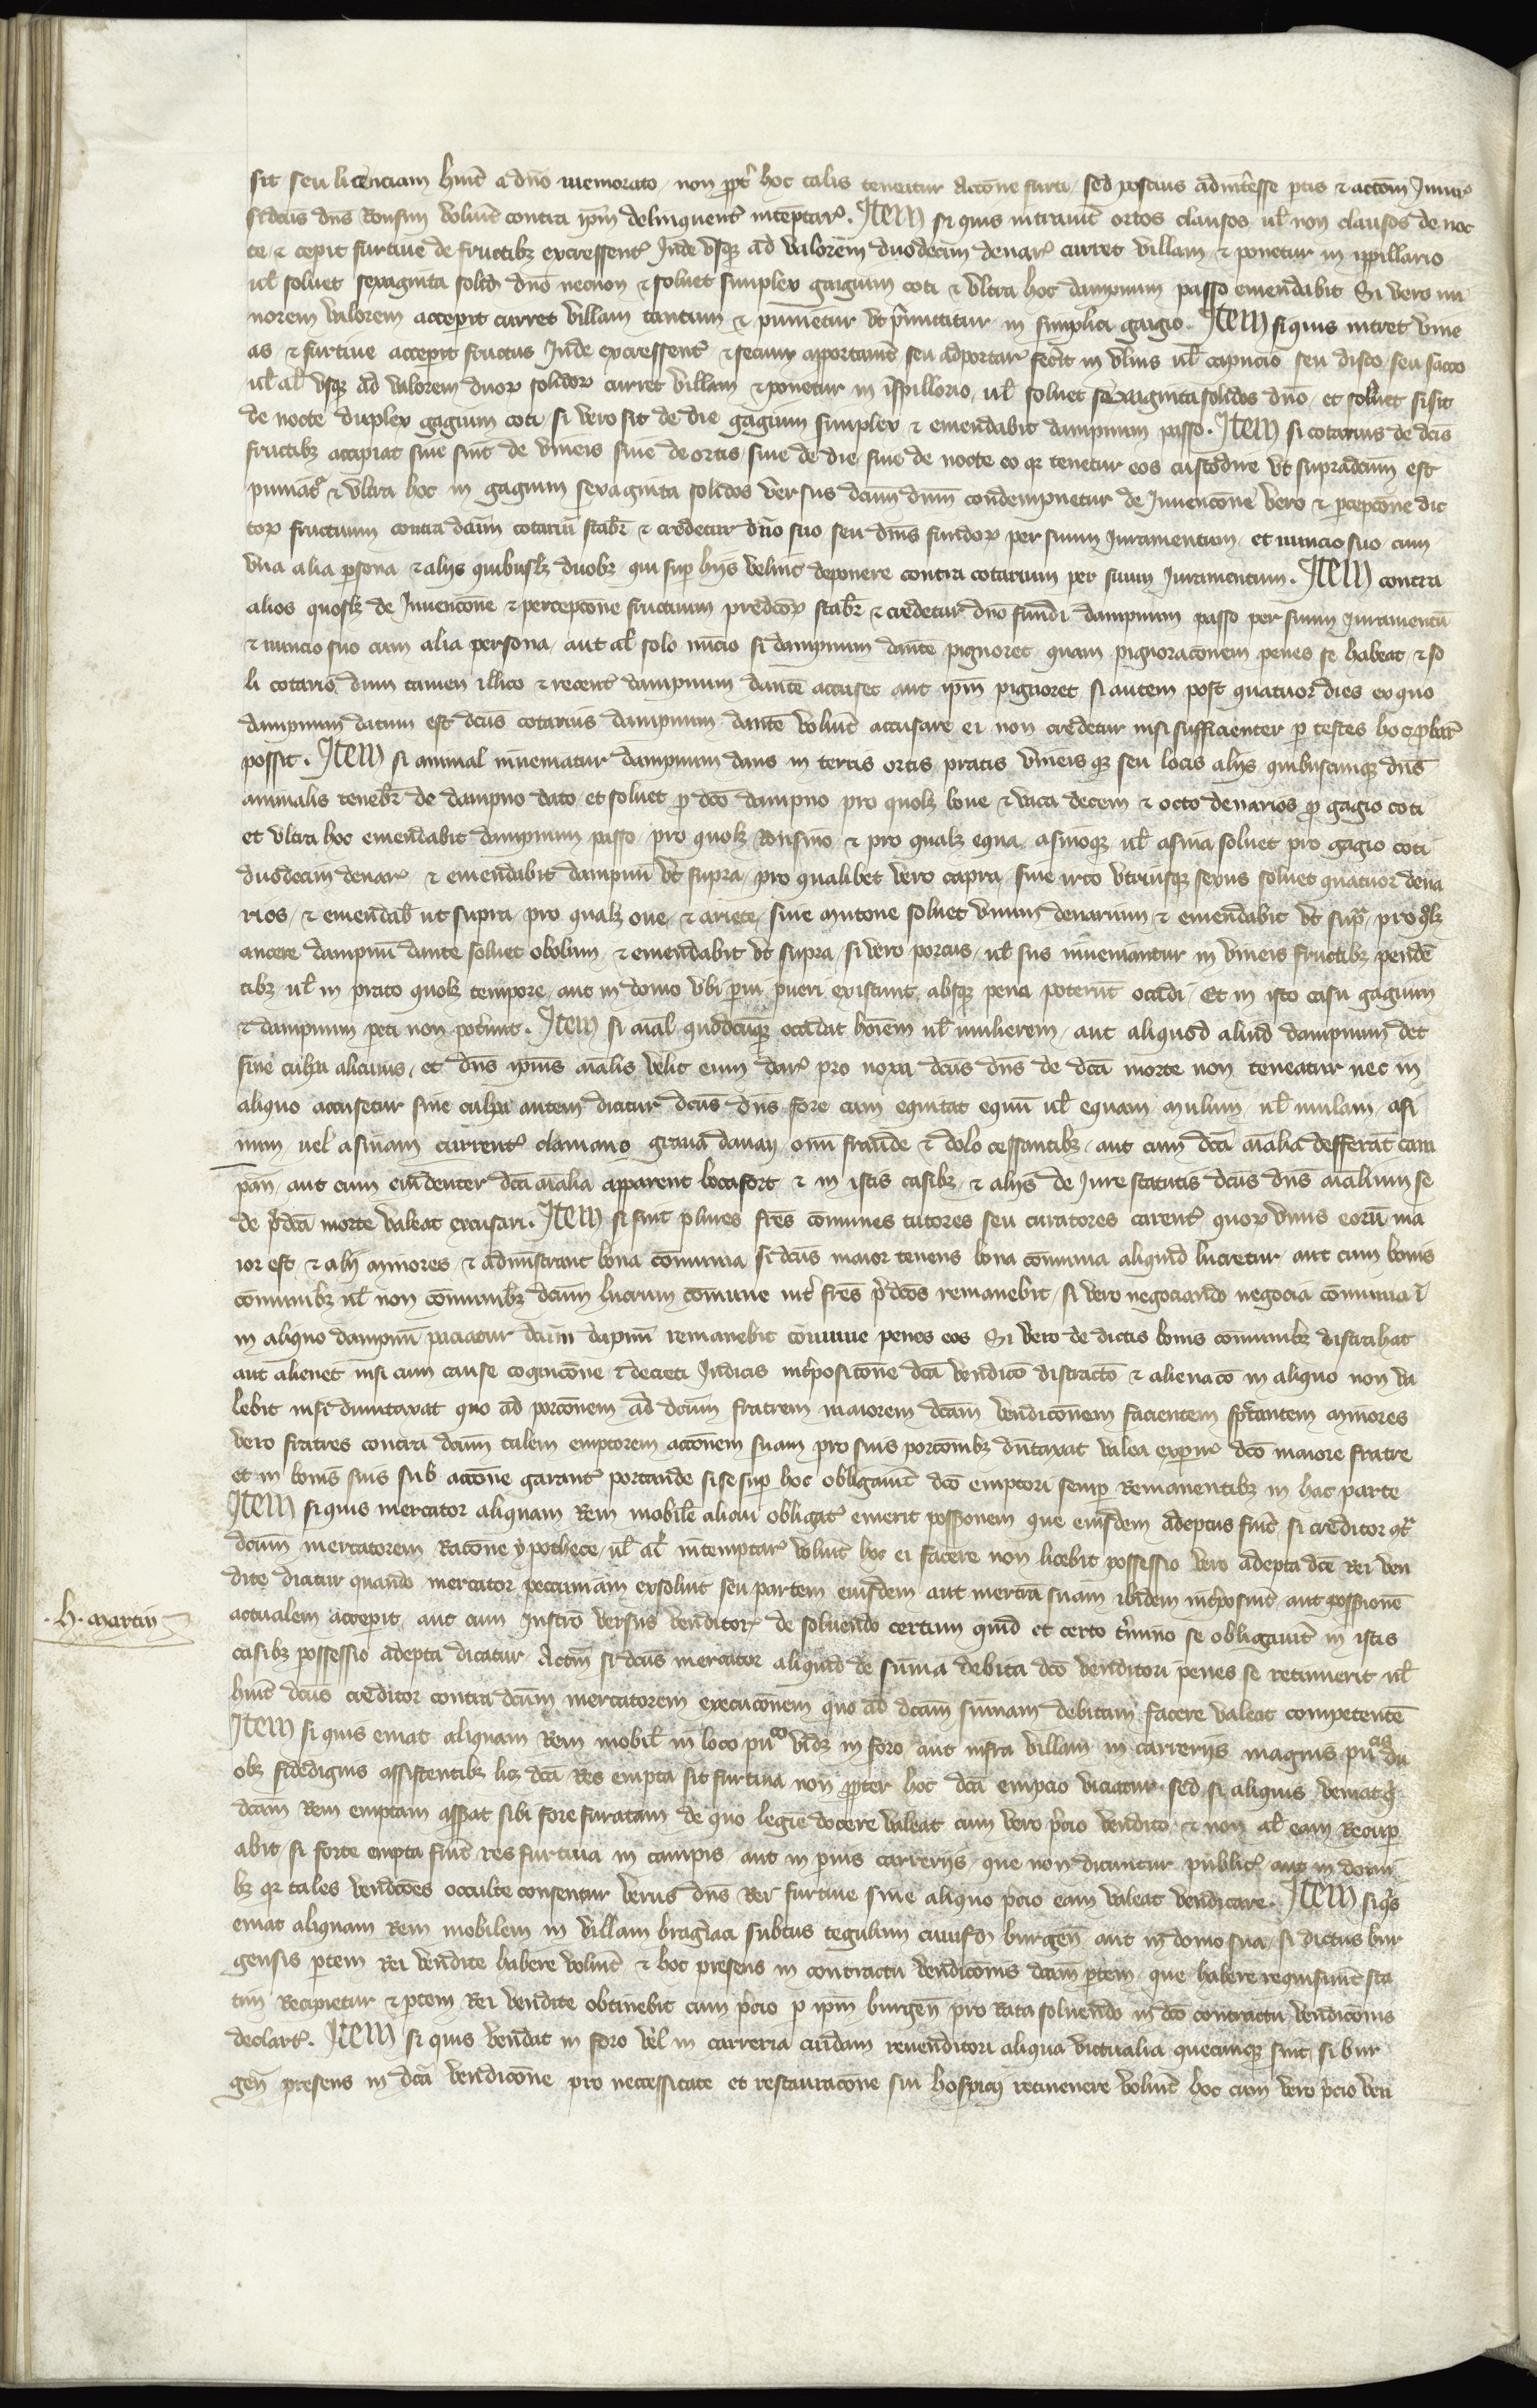 sit seu licenciam huit̄ a dn̄o memorato non ppt̄ hoc talis teneatur actōne furti sed pocius ad int̄esse ptis & actōm Iniur̄
si dcūs dn̄s Ronsini voluit̄ contra ipm̄ delinquent̄ inteptar̄. Item si quis intrauit̄ ortos clausos ul̄ non clausos de noc
te & cepit furtiue de fructibȝ excressent̄ Inde vsqȝ ad valorem duodecim denar̄ curret villam & ponetur in ispillario
ul̄ soluet sexaginta solid dn̄o necnon & soluet simplex gaigium coti & vltra hoc dampnum passo emendabit Si vero mi
norem valorem accepit curret villam tantum & punietur vt p̄mittitur in simplici gaigio. Item si quis intret vine
as & furtiue acceperit fructus Inde excressent̄ & secum apportauit̄ seu adportar̄ fecit̄ in ul̄nis ul̄ capucio seu disco seu sacco
ul̄ al̄ vsqȝ ad valorem duoꝝ solidoꝝ curret villam & ponetur in ispillorio ul̄ soluet sexaginta solidos dn̄o et soluet si sit
de nocte duplex gagium coti si vero sit de die gagium simplex & emendabit dampnum passo. Item si cotarius de dc̄is
fructibȝ accipiat siue sint de vineis siue de ortis siue de die siue de nocte eo qȝ tenetur eos custodire vt supradcm̄ est
puniat̄ & vltra hoc in gagium sexaginta solidos versus dcm̄ dnm̄ condempnetur de Inuencōne vero & pcepcōne dic
toꝝ fructuum contra dcm̄ cotariū stabit̄ & credetur dn̄o suo seu dn̄is fundoꝝ per suum Iuramentum et nuncio suo cum
vna alia psona & alijs quibuslȝ duobȝ qui sup hijs velint̄ deponere contra cotarium per suum Iuramentum. Item contra
alios quoslȝ de Inuencōne & percepcōne fructuum predcōꝝ stabit̄ & credetur dn̄o fundi dampnum passo per suum Iuramentū
& nuncio suo cum alia persona aut al̄ solo nūcio si dampnum dantē pignoret quam pignoracōnem penes se habeat & so
li cotario dum tamen illico & recent̄ dampnum dantē accuset aut ipm̄ pignoret si autem post quatuor dies ex quo
dampnum datum est dcūs cotarius dampnum dantē voluit̄ accusare ei non credetur nisi sufficienter p testes hoc pbar̄
possit. Item si animal inueniatur dampnum dans in terris ortis pratis vineisqȝ seu locis alijs quibuscunqȝ dn̄s
animalis tenebit̄ de dampno dato et soluet p dcō dampno pro quolȝ boue & vaca decem & octo denarios p gagio coti
et vltra hoc emendabit dampnum passo pro quolȝ Ronsino & pro qualȝ equa asinoqȝ ul̄ asina soluet pro gagio coti
duodecim denar̄ & emendabit dampnū vt supra pro qualibet vero capra siue irco vtriusqȝ sexus soluet quatuor dena
rios & emendab̄ ut supra pro qualȝ oue & ariete siue mutone soluet vnum denarium & emendabit vt supͣ pro qͣlȝ
ancere dampnū dante soluet obolum & emendabit vt supra si vero porcus ul̄ sus inueniantur in vineis fructibȝ pendē
tibȝ ul̄ in prato quolȝ tempore aut in domo vbi parui pueri existunt absqȝ pena poterūt occidi Et in isto casu gagium
& dampnum peti non poterunt. Item si aīal quodcūqȝ occidat hoīem ul̄ mulierem aut aliquod aliud dampnum det
sine culpa alicuius et dn̄s ipius aīalis velit eum dar̄ pro noxa dcūs dn̄s de dcā morte non teneatur nec in
aliquo accusetur sine culpa autem dicitur dcūs dn̄s fore cum equitat equū ul̄ equam mulum ul̄ mulam asi
num uel asinam current̄ clamans gratia dauan omī fraude & dolo cessantibȝ aut cum dcā aīalia defferāt cam
pan̄ aut cum euidenter dcā aīalia apparent locafort & in istis casibȝ & alijs de Iure statutis dcūs dn̄s aīalium se
de p̄dcā morte valeat excusari. Item si sint plures frēs comunes tutores seu curatores carent̄ quoꝝ vnus eorū ma
ior est & alij minores & administrant bona comunia si dcūs maior tenens bona comunia aliquid lucretur aut cum bonis
comunibȝ ul̄ non comunibȝ dcm̄ lucrum comune int̄ frēs p̄dcōs remanebit si vero negociando negocia comunia
in aliquo dampnū paciatur dcm̄ dapnū remanebit comune penes eos Si vero de dictis bonis comunibȝ distrahat
aut alienet nisi cum cause cognicōne & decreti Iudicis int̄posicōne dcā vendicō distractō & alienacō in aliquo non va
lebit nisi dumtaxat quo ad porcōnem ad dcm̄ fratrem maiorem dcām vendicōnem facientem spectantem minores
vero fratres contra dcm̄ talem emptorem actōnem suam pro suis porcōnibȝ dūtaxat valea exper̄ dcō maiore fratre
et in bonis suis sub actōne garant̄ portande si se sup hoc obligauit̄ dcō emptori semp Remanentibȝ in hac parte
Item si quis mercator aliquam Rem mobile alicui obligat̄ emerit possionem que eiusdem adeptus fuit̄ si creditor qtͣ
dcm̄ mercatorem Racōne ypothece ul̄ al̄ intemptar̄ voluit̄ hoc ei facere non licebit possessio vero adepta dcē Rei ven
dite dicitur quando mercator peccuniam exsoluit seu partem eiusdem aut mercā suam ibidem int̄posuit̄ aut possionē
· H · martin
actualem accepit aut cum Instro versus venditor̄ de soluendo certum quid et certo t̄mino se obligauit̄ in istis
casibȝ possessio adepta dicatur Actm̄ si dcūs mercator aliquid de sūma debita dcō venditori penes se retinuerit ul̄
huit̄ dcūs creditor contra dcm̄ mercatorem execucōnem quo ad dcām sūmam debitam facere valeat competentē
Item si quis emat aliquam Rem mobil̄ in loco puco vidȝ in foro aut infra villam in carrerijs magnis pucis du
obȝ fidedignis assistentibȝ licȝ dcā Res empta sit furtiua non ppter hoc dcā empcio viciatur sed si aliquis veniat
dcām Rem emptam asserat sibi fore furatam de quo legiē docere valeat cum vero p̄cio vendito & non al̄ eam Recup
abit si forte empta fuit̄ res furtiua in campis aut in pruis carrerijs que non dicuntur public̄ aut in domi
bȝ qȝ tales vendcōes occulte consentur verus dn̄s Rei furtiue sine aliquo p̄cio eam valeat vendicare. Item si qͥs
emat aliquam Rem mobilem in villam bragiaci subtus tegulum cuiusd burgen̄ aut in domo sua si dictus bur
gensis ptem Rei vendite habere voluit̄ & hoc presens in contractu vendicōnis dcām ptem que habere requisiuit̄ sta
tim Recipietur & ptem Rei vendite obtinebit cum p̄cio p ipm̄ burgen̄ pro Rata soluendo in dcō contractu vendicōnis
declart̄. Item si quis vendat in foro vel in carreria cuidam reuenditori aliqua victualia quecunqȝ sint si bur
gen̄ presens in dcā vendicōne pro necessitate et restauracōne sui hospicij retinenere voluit̄ hoc cum vero p̄cio ven